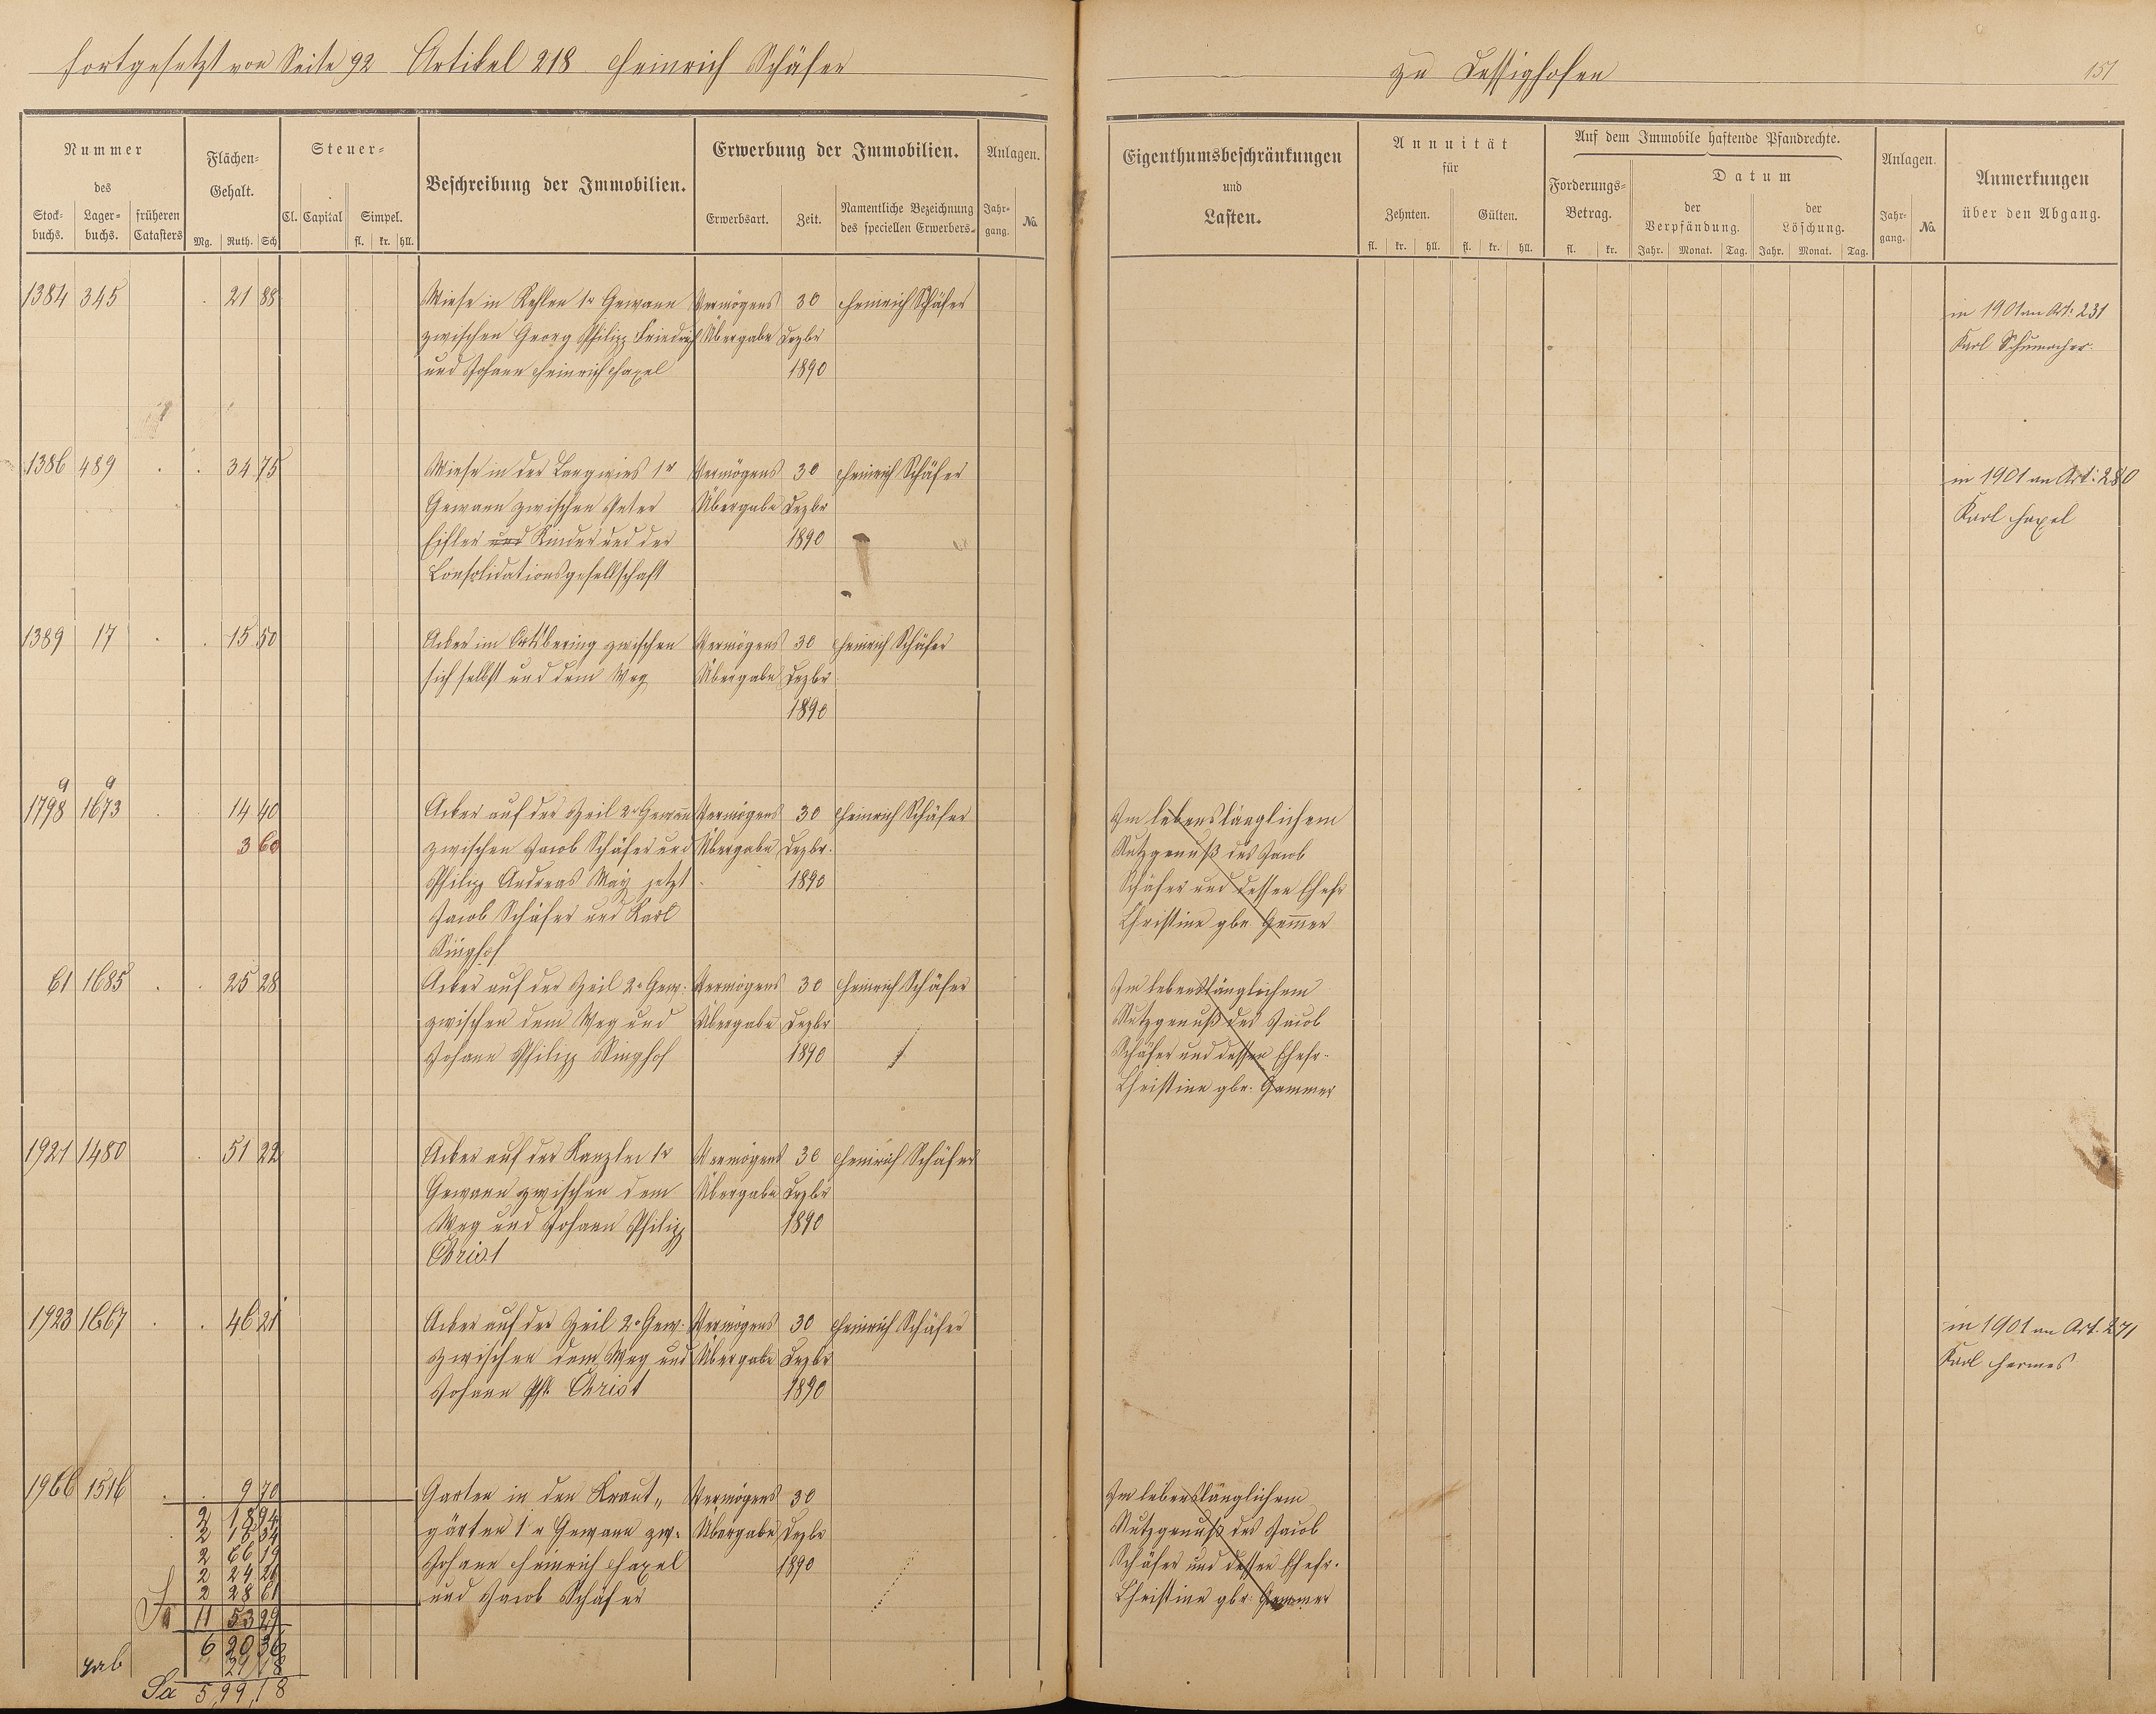 fortgesetzt von Seite 92 Artikel 218 Heinrich Schäfer
zu Dessighofen
151
Nummer
des
Stock-
buchs.
Lager-
buchs.
früheren
Catasters
Flächen-
Gehalt.
Mg. Ruth. Sch
Steuer-
Cl. Capital Simpel.
fl. kr. hll.
Beschreibung der Immobilien.
Erwerbung der Immobilien.
Erwerbsart. Zeit.
Namentliche Bezeichnung
des speciellen Erwerbers.
Anlagen.
Jahr-
gang. No.
Eigenthumsbeschränkungen
und
Lasten.
Annuität
für
Zehnten. Gülten.
fl. kr. hll. fl. kr. hll.
Auf dem Immobile haftende Pfandrechte.
Forderungs-
Betrag.
fl. kr.
Datum
der
Verpfändung.
der
Löschung.
Jahr. Monat. Tag. Jahr. Monat. Tag.
Anlagen.
Jahr-
gang. No.
Anmerkungen
über den Abgang.
1384 345 21 88 Wiese in Rehlen 1r Gewann Vermögens 30 Heinrich Schäfer
zwischen Georg Philipp Friedrich Übergabe Dezbr
und Johann Heinrich Haxel 1890
in 1901 an Art. 231
Karl Schumacher.
1386 489 34 75 Wiese in der Langwies 1r Vermögens 30 Heinrich Schäfer
Gewann zwischen Peter Übergabe Dezbr
und Kinder und der 1890
Consolidationsgesellschaft
in 1901 an Art: 280
Karl Haxel
1389 17 15 50 Acker im Ortsbering zwischen Vermögens 30 Heinrich Schäfer
sich selbst und dem Weg Übergabe Dezbr
1890
a a
1798 1673 14 40 Acker auf der Zeil 2r Gewann Vermögens 30 Heinrich Schäfer
3 60 zwischen Jacob Schäfer und Übergabe Dezbr.
Philipp Andreas May jetzt 1890
Jacob Schäfer und Karl
Singhof
Im lebenslänglichem
Nutzgenuß des Jacob
Schäfer und dessen Ehefr
Christine gbr. Gemmer
61 1685 25 28 Acker auf der Zeil 2r Gew. Vermögens 30 Heinrich Schäfer
zwischen dem Weg und Übergabe Dezbr
Johann Philipp Singhof 1890
Im lebenslänglichem
Nutzgenuß des Jacob
Schäfer und dessen Ehefr.
Christine gbr. Gemmer
1921 1480 51 22 Acker auf der Kanzler 1r Vermögens 30 Heinrich Schäfer
Gewann zwischen dem Übergabe Dezbr
Weg und Johann Philipp 1890
Christ
1923 1667 46 21 Acker auf der Zeil 2r Gew. Vermögens 30 Heinrich Schäfer
zwischen dem Weg und Übergabe Dezbr
Johann Ph. Christ 1890
in 1901 an Art. 271
Karl Hermes
1966 1516 9 70 Garten in den Kraut- Vermögens 30
gärten 1r Gewann zw. Übergabe Dezbr
Johann Heinrich Haxel 1890
und Jacob Schäfer
Im lebenslänglichem
Nutzgenuß des Jacob
Schäfer und dessen Ehefr.
Christine gbr. Gemmer
2 18 94
2 18 34
2 66 19
2 24 26
2 28 61
Sa 11 53 29
6 20 36
ab 21 18
Sa 5,99,18